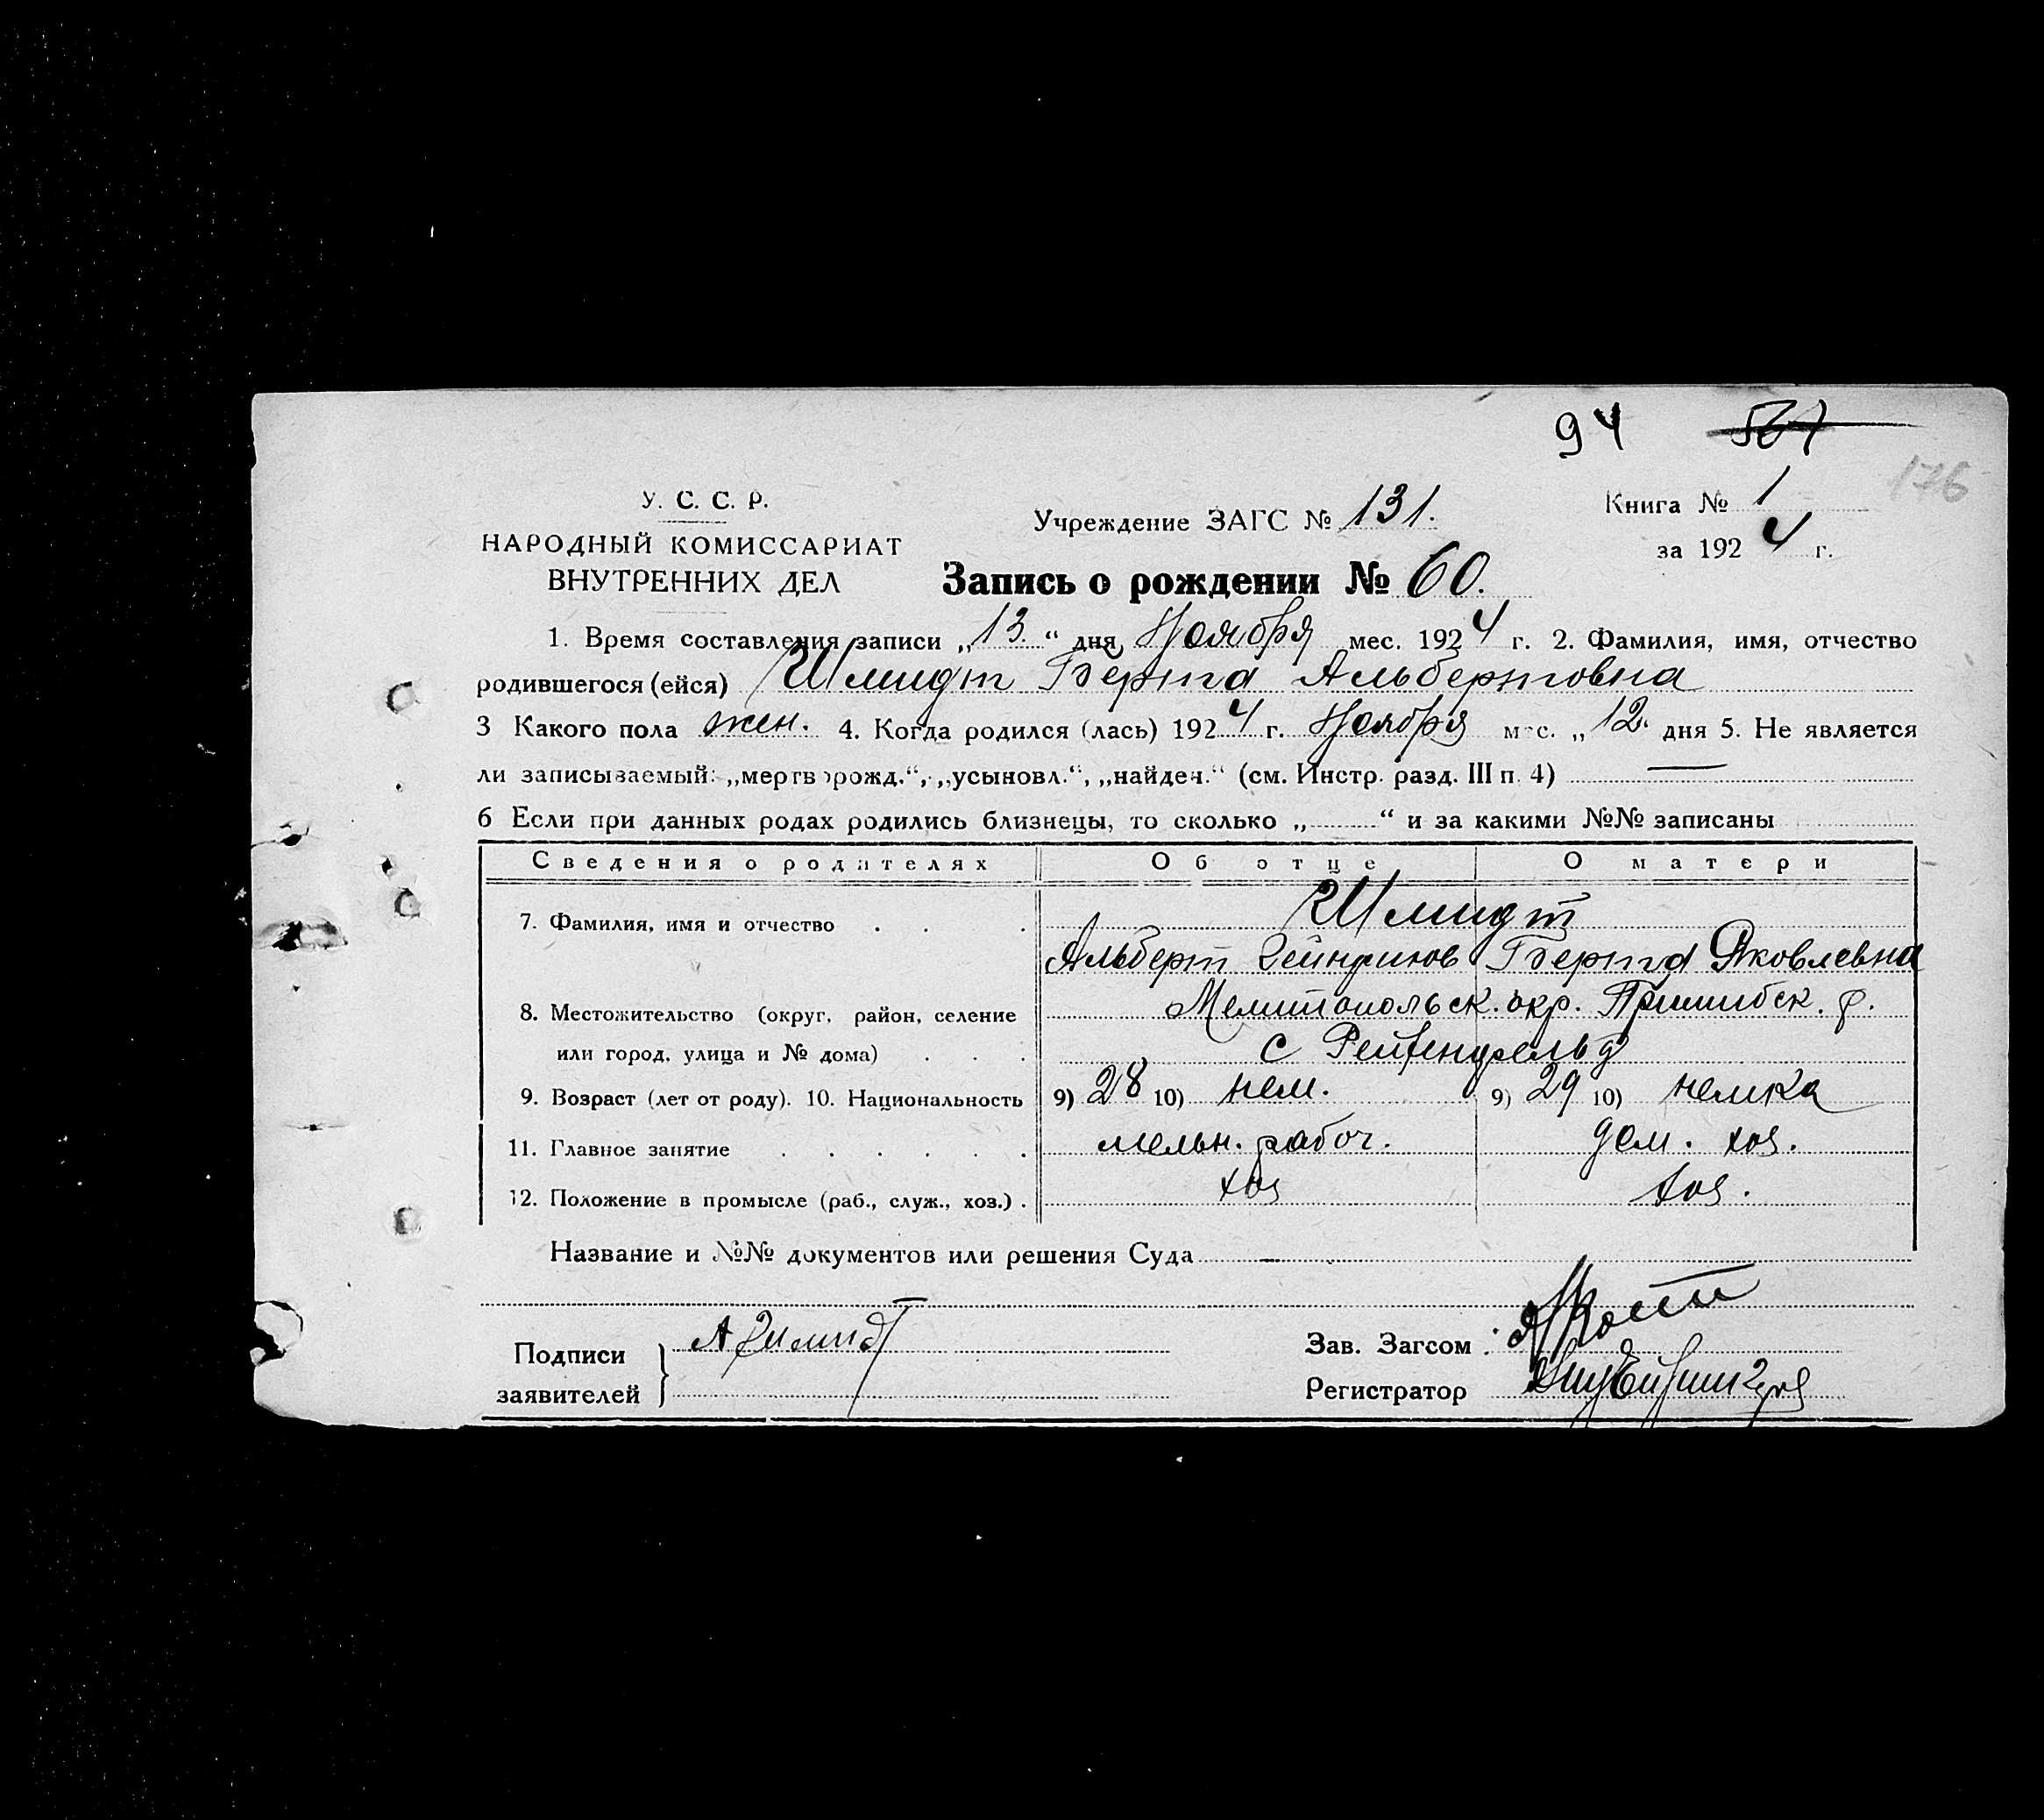 94 567
176
У. С. С. Р.
НАРОДНЫЙ КОМИССАРИАТ
ВНУТРЕННИХ ДЕЛ
Учреждение ЗАГС № 131.
Книга № 1
за 1924 г.
Запись о рождении № 60.
1. Время составления записи „13“ дня Ноября мес. 1924 г. 2. Фамилия, имя, отчество
родившегося (ейся) Шмидт Берта Альбертовна
3 Какого пола жен. 4. Когда родился (лась) 1924 г. Ноября мес. „12. дня 5. Не является
ли записываемый: „мертворожд.“, „усыновл.“, „найден.“ (см. Инстр. разд. III п. 4) —
6 Если при данных родах родились близнецы, то сколько „ “ и за какими №№ записаны
Сведения о родителях Об отце О матери
7. Фамилия, имя и отчество Шмидт
Альберт Гейнрихов Берта Яковлевна
8. Местожительство (округ, район, селение Мелитопольск. окр. Пришибск. р.
или город, улица и № дома) с Рейхенфельд
9. Возраст (лет от роду). 10. Национальность 9) 28 10) нем. 9) 29 10) немка
11. Главное занятие мельн. рабоч. дом. хоз.
12. Положение в промысле (раб., служ., хоз.) хоз хоз.
Название и №№ документов или решения Суда —
Подписи
заявителей
А Шмидт
Зав. Загсом
Регистратор